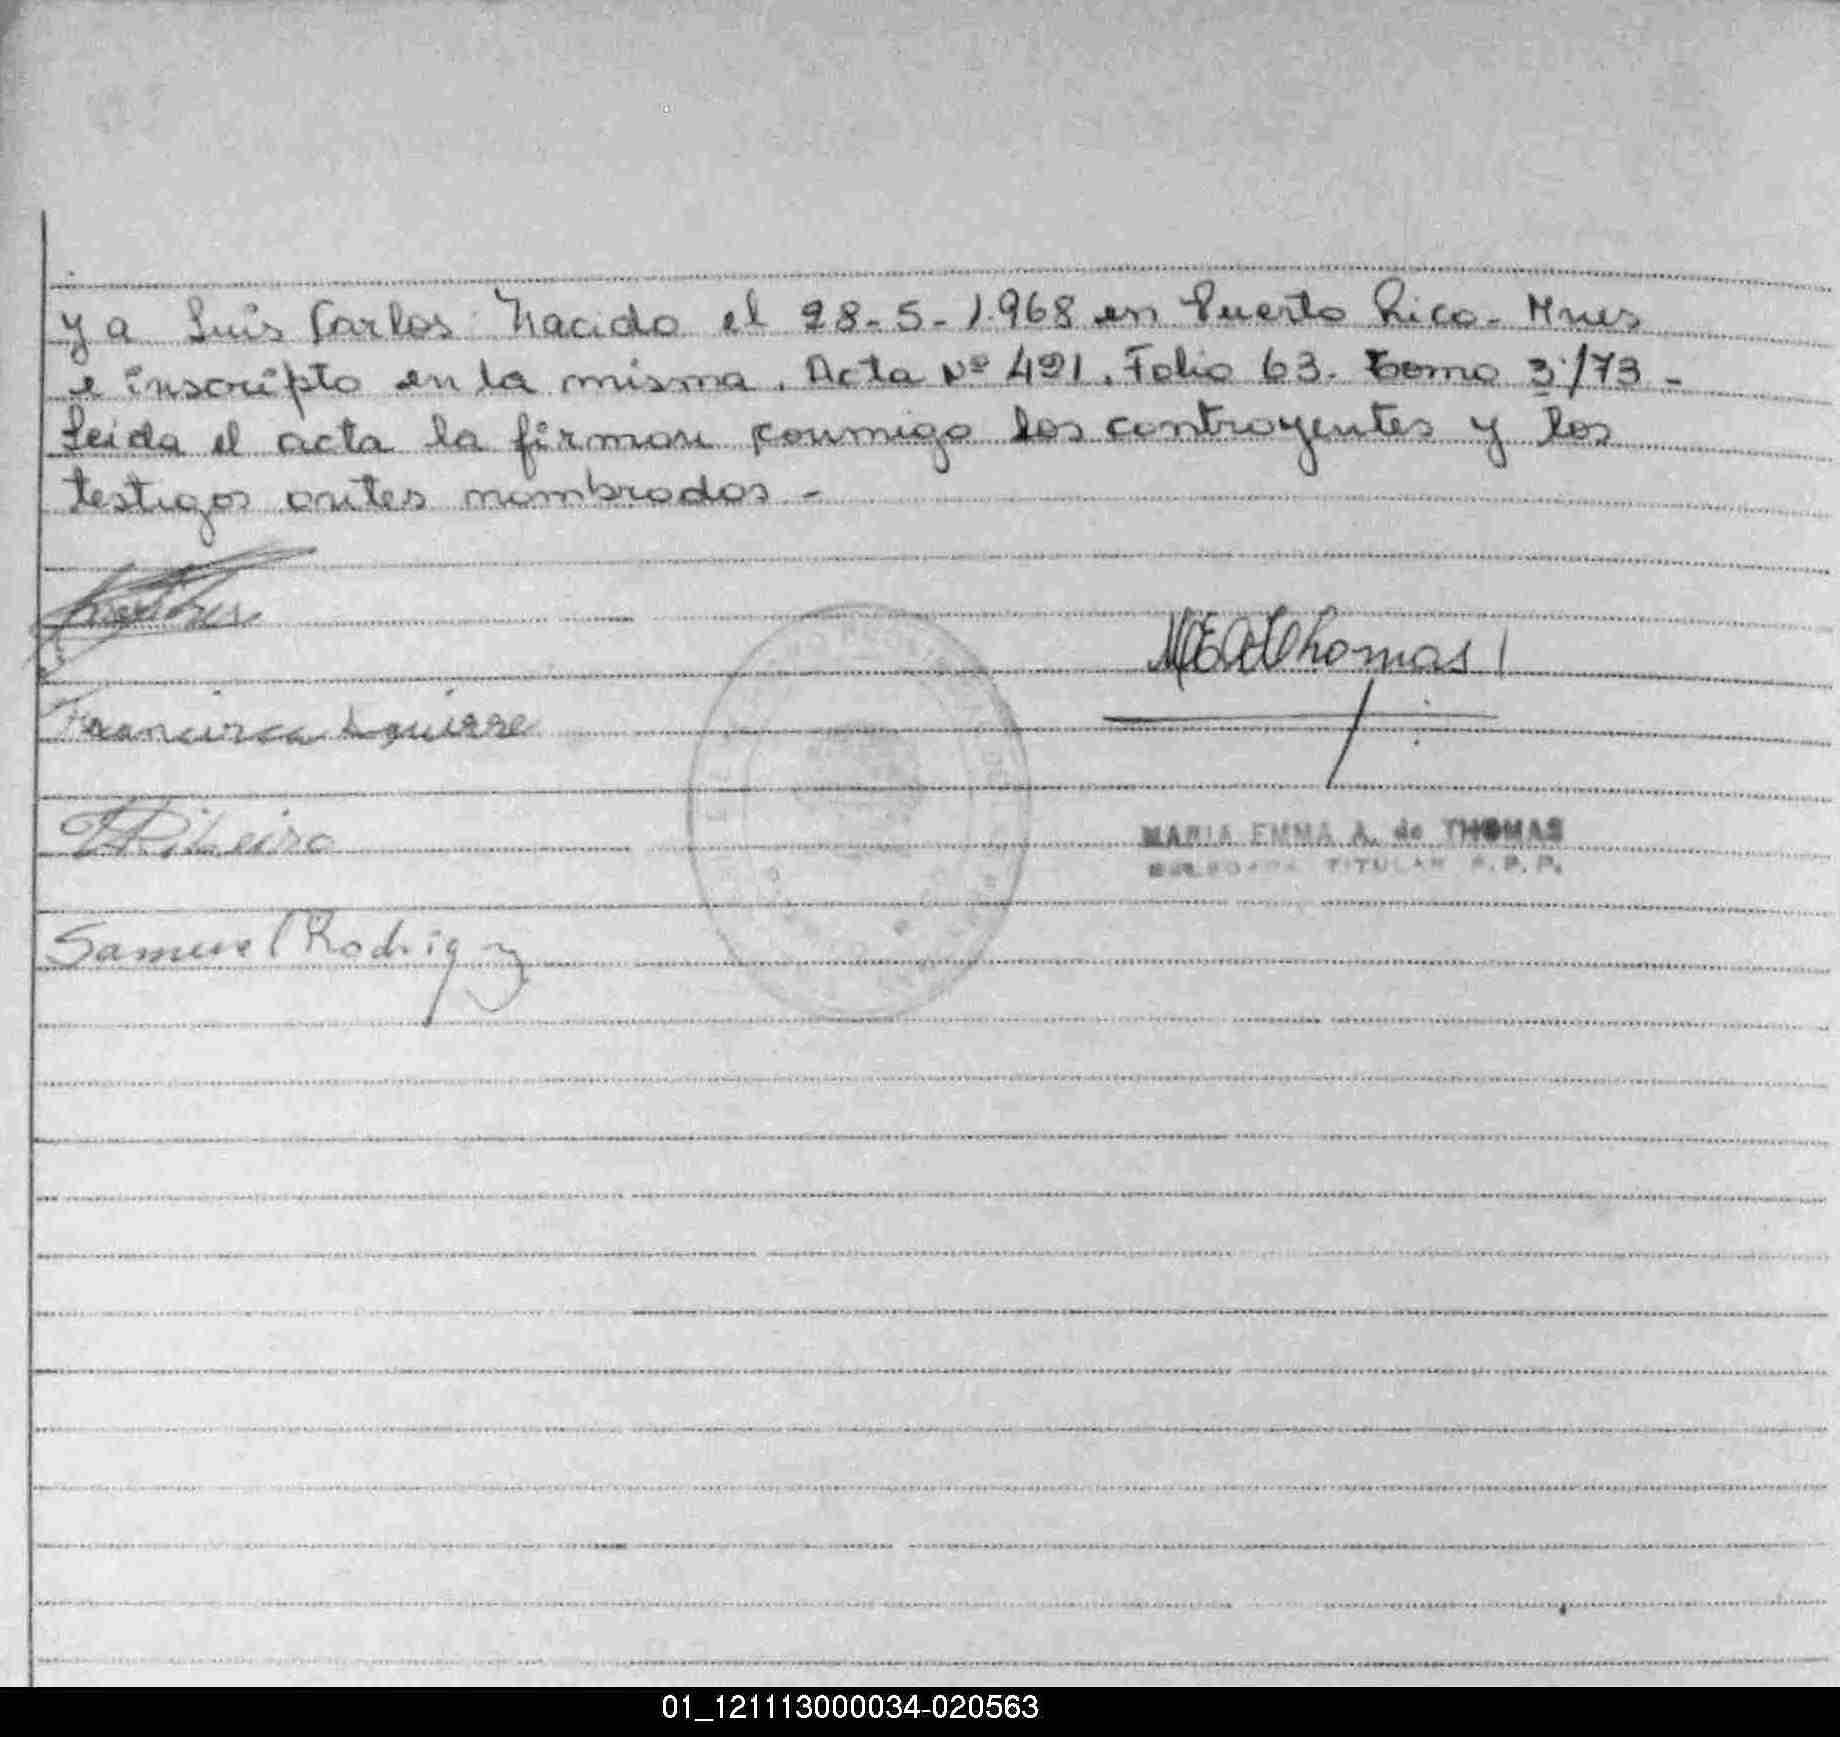 y a Luis Carlos. Nacido el 28-5-1.968 en Puerto Rico. Mnes
e inscripto en la misma. Acta Nº 421. Folio 63. Tomo 3/73 -
Leida el acta la firman conmigo los contrayentes y los
testigos antes nombrados -
Francisca Aguirre
Ribeiro
Samuel Rodrig z
M E A Thomas
MARIA EMMA A. de THOMAS
TITULAR R.P.P.
01_121113000034-020563